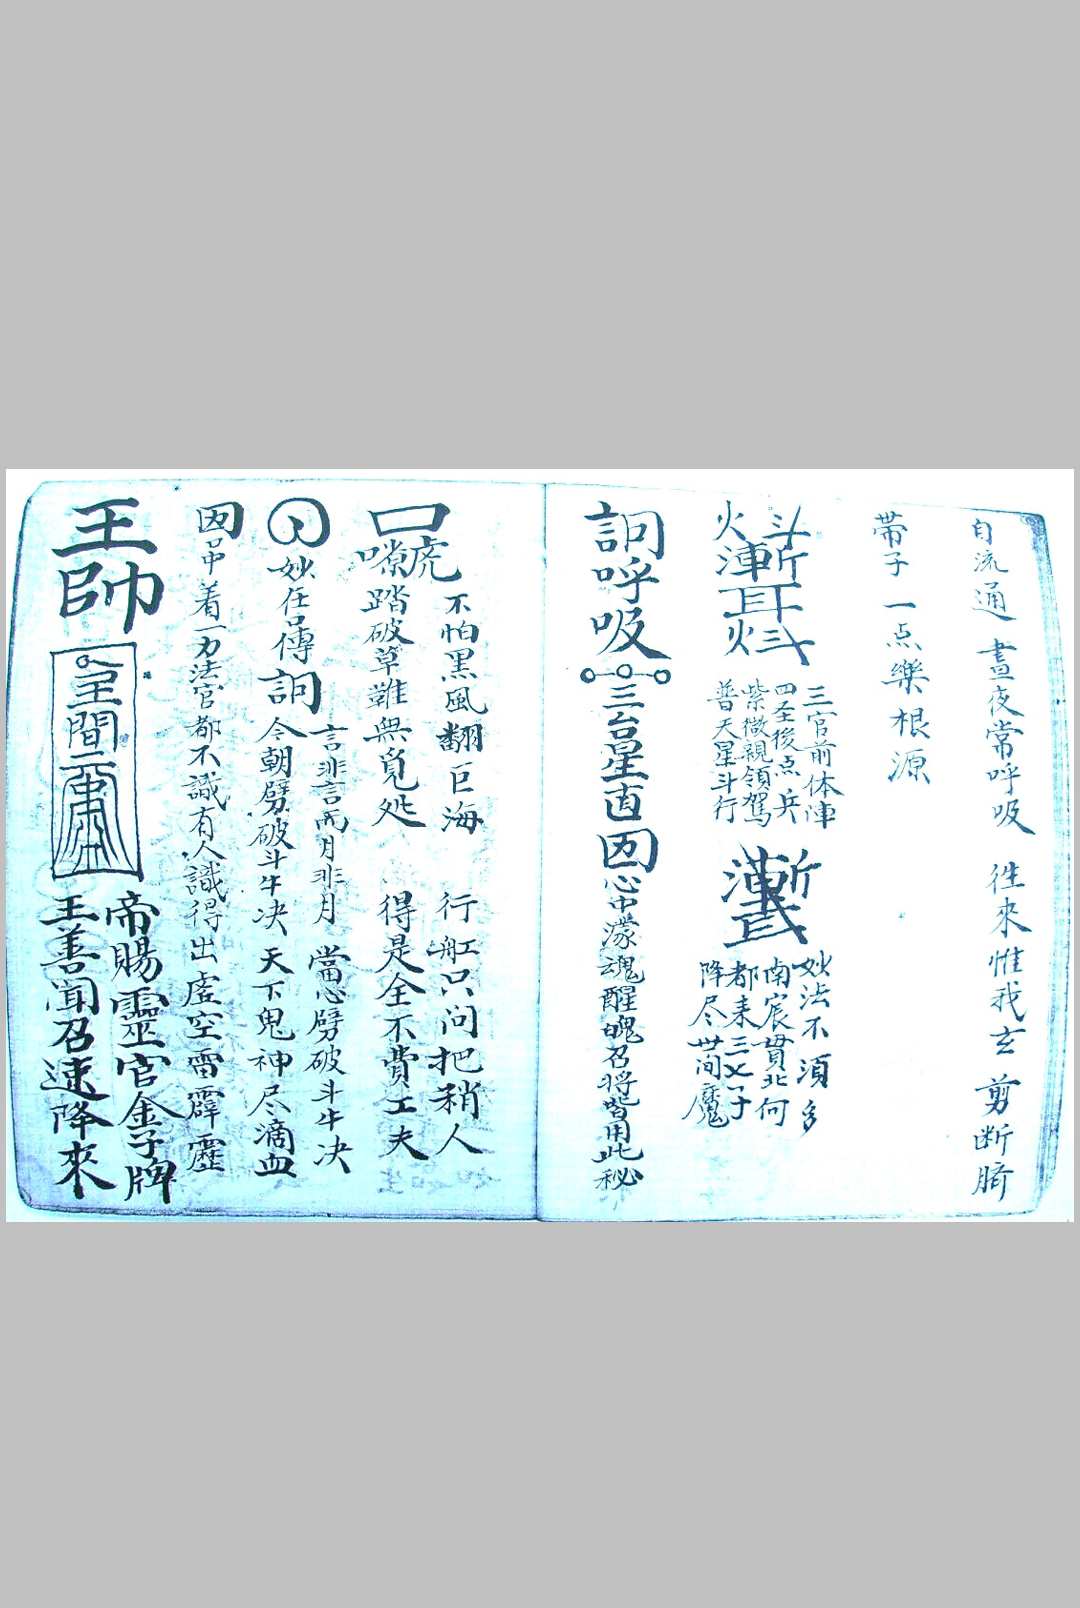 自流通 晝夜常呼吸 徃來惟我玄 剪断臍
帶子 一点樂根源
斗
火
三官前体
四圣後点兵
紫微親領駕
普天星斗行
妙法不須多
南宸貫北何
都来三七子
降尽世间魔
訶呼吸
三台星
心中濛魂醒魄召将皆用此秘
口
虎 不怕黑風翻巨海 行舡只问把稍人
踏破草鞋無覓処 得是全不費工夫
妙在 傳
言非言 月非月 當心劈破斗牛决
今朝劈破斗牛决 天下鬼神尽滴血
着一力法官都不識有人識得出虚空雷霹靂
王帥
帝賜靈官金子牌
王善闻召速降來